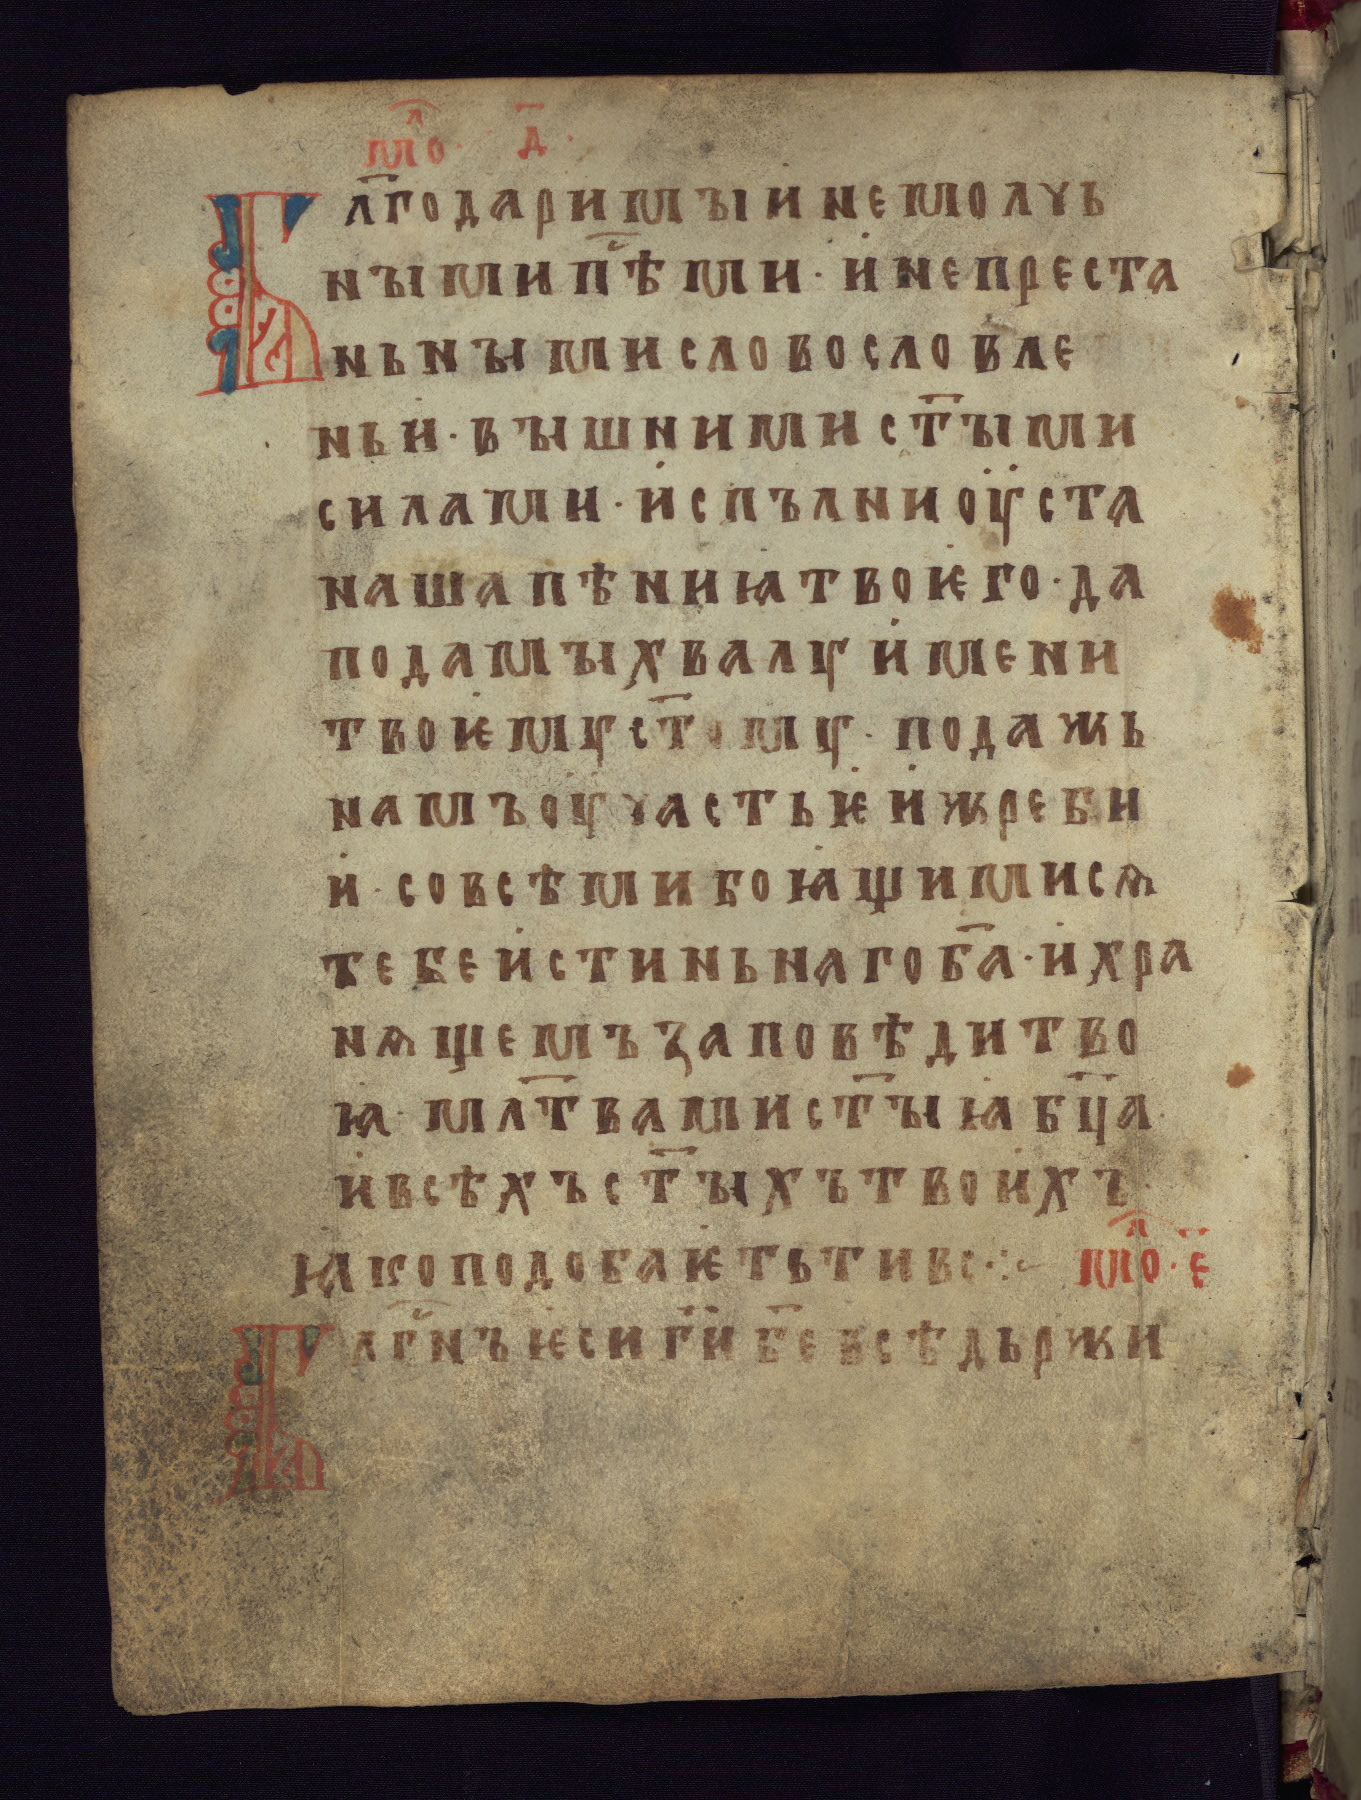 мл҃о· д҃·
Бл҃годаримъı и немолчь
нъıми пѣ҃ⷭми· и непреста
ньнъıми словословле
ньи· въıшними ст҃ъıми
силами· исполъни оуста
наша пѣниꙗ твоѥго· да
подамъı хвалꙋ имени
твоѥмꙋ ст҃омꙋ· подажь
намъ оучастьѥ и жреби
и· со всѣми боꙗщимисѧ
тебе истиньнаго ба҃· и хра
нѧщемъ заповѣди тво
ꙗ· млт҃вами ст҃ъıꙗ бц҃а·
и всѣхъ ст҃ъıхъ твоихъ·
ꙗко подобаѥть ти вс·:~ мл҃о· е҃
Блг҃ⷭнъ ѥси г҃и б҃е вседьржи